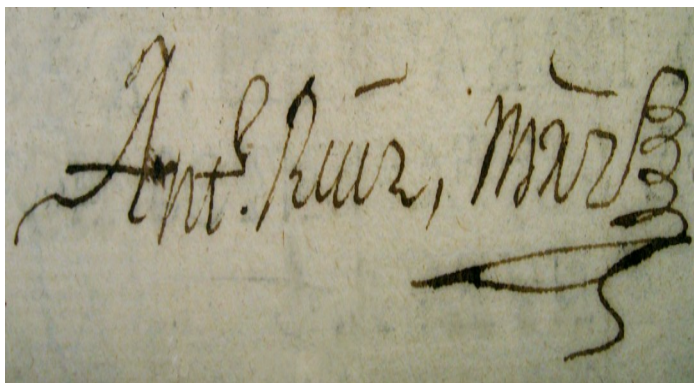 Ant.º Ruiz, Mrz